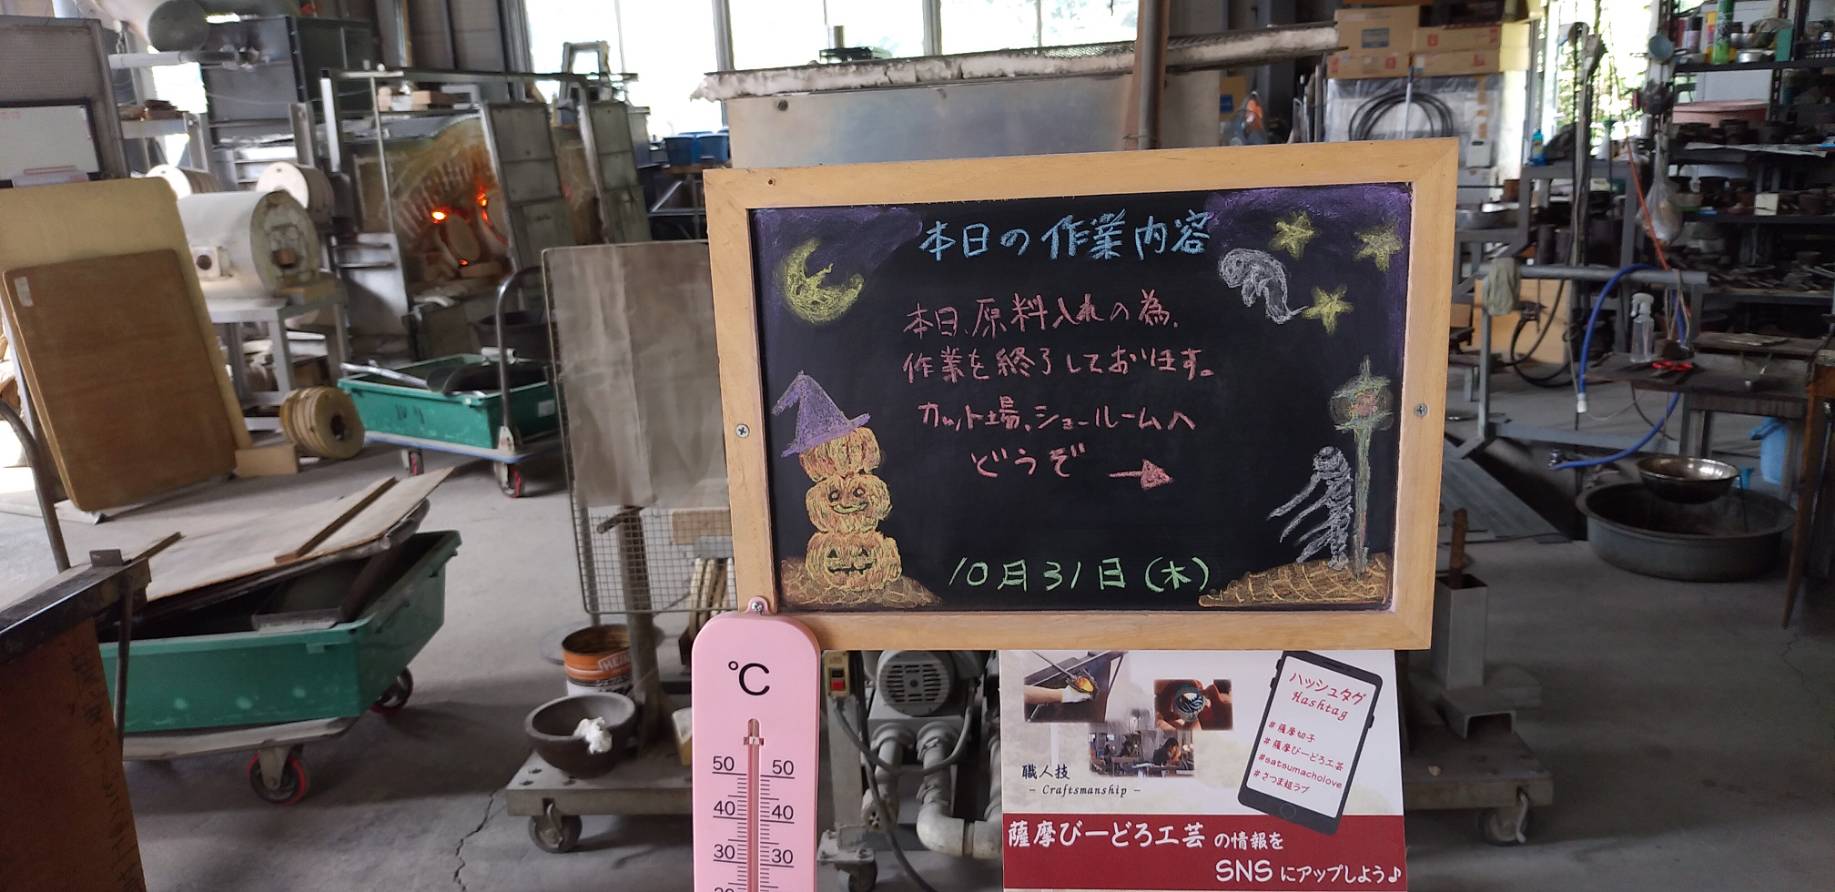 本日の作業内容
本日、原料入れの為、
作業を終了しております。
カット場、ショールームへ
どうぞ →
10月31日(木)
℃
50 50
40 40
30 30
職人技
- Craftsmanship -
ハッシュタグ
Hashtag
#薩摩切子
#薩摩びーどろ工芸
#satsumacholove
#さつま蝶ラブ
薩摩びーどろ工芸の情報を
SNSにアップしよう♪